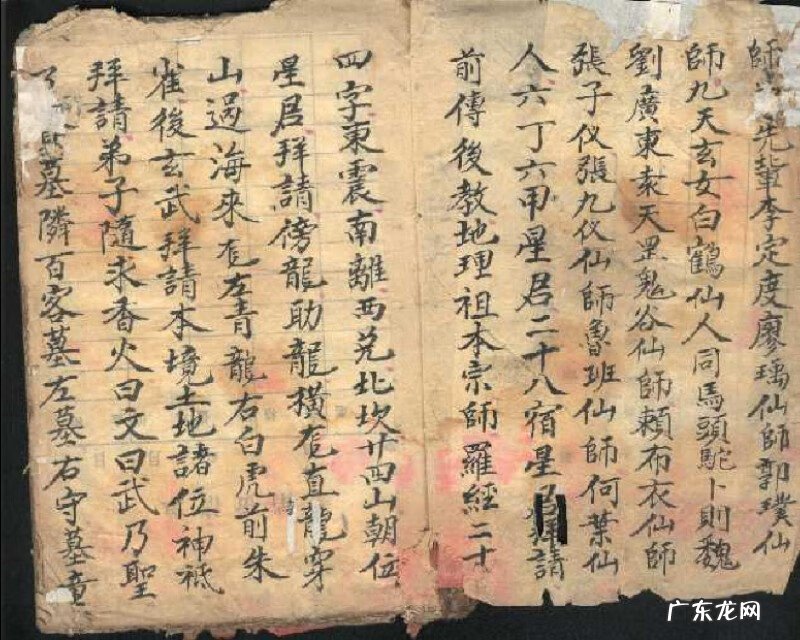 師 先輩李定度廖瑀仙師郭璞仙
師九天玄女白鶴仙人同馬頭駝卜則魏
劉廣東袁天罡鬼谷仙師賴布衣仙師
張子仪張九仪仙師魯班仙師何葉仙
人六丁六甲星君二十八宿星君拜請
前傳後教地理祖本宗師羅經二十
四字東震南離西兌北坎廿四山朝位
星居拜請傍龍助龍橫龍直龍穿
山過海來龍左青龍右白虎前朱
雀後玄武拜請本境土地諸位神祇
拜請弟子隨求香火曰文曰武乃聖
墓隣百客墓左墓右守墓童
广东龙网